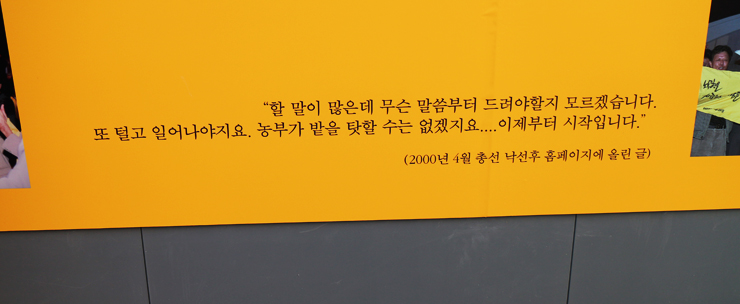 “할 말이 많은데 무슨 말씀부터 드려야할지 모르겠습니다.
또 털고 일어나야지요. 농부가 밭을 탓할 수는 없겠지요....이제부터 시작입니다.”
(2000년 4월 총선 낙선후 홈페이지에 올린 글)